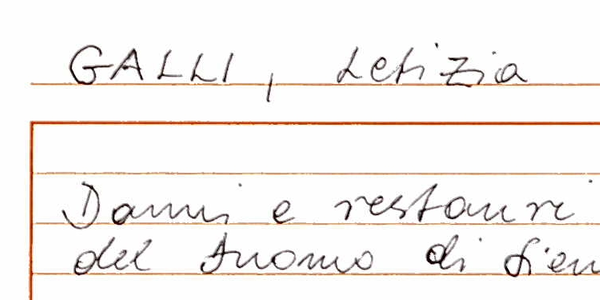 GALLI, Letizia
Danni e restauri
del Duomo di Sien